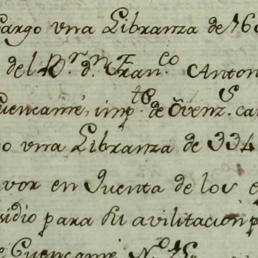 argo vna Libranza de 16
del Dⁿ. dⁿ Fran.co Anton
Cuencamé, imp.te de
o vna Libranza de 334
vor en Quenta de los
sidio para su avilitacion p
Cuencamé Nº. 15